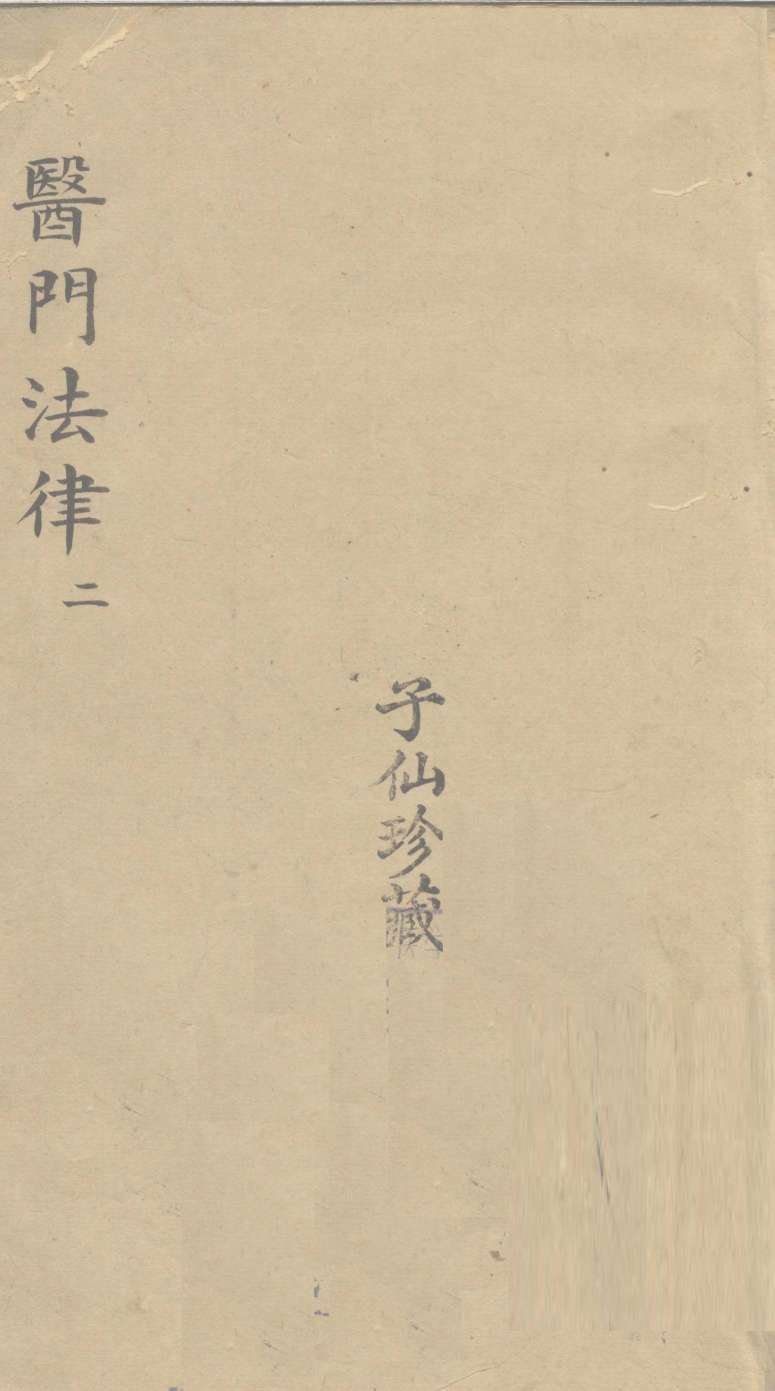 子仙珍藏
醫門法律 二